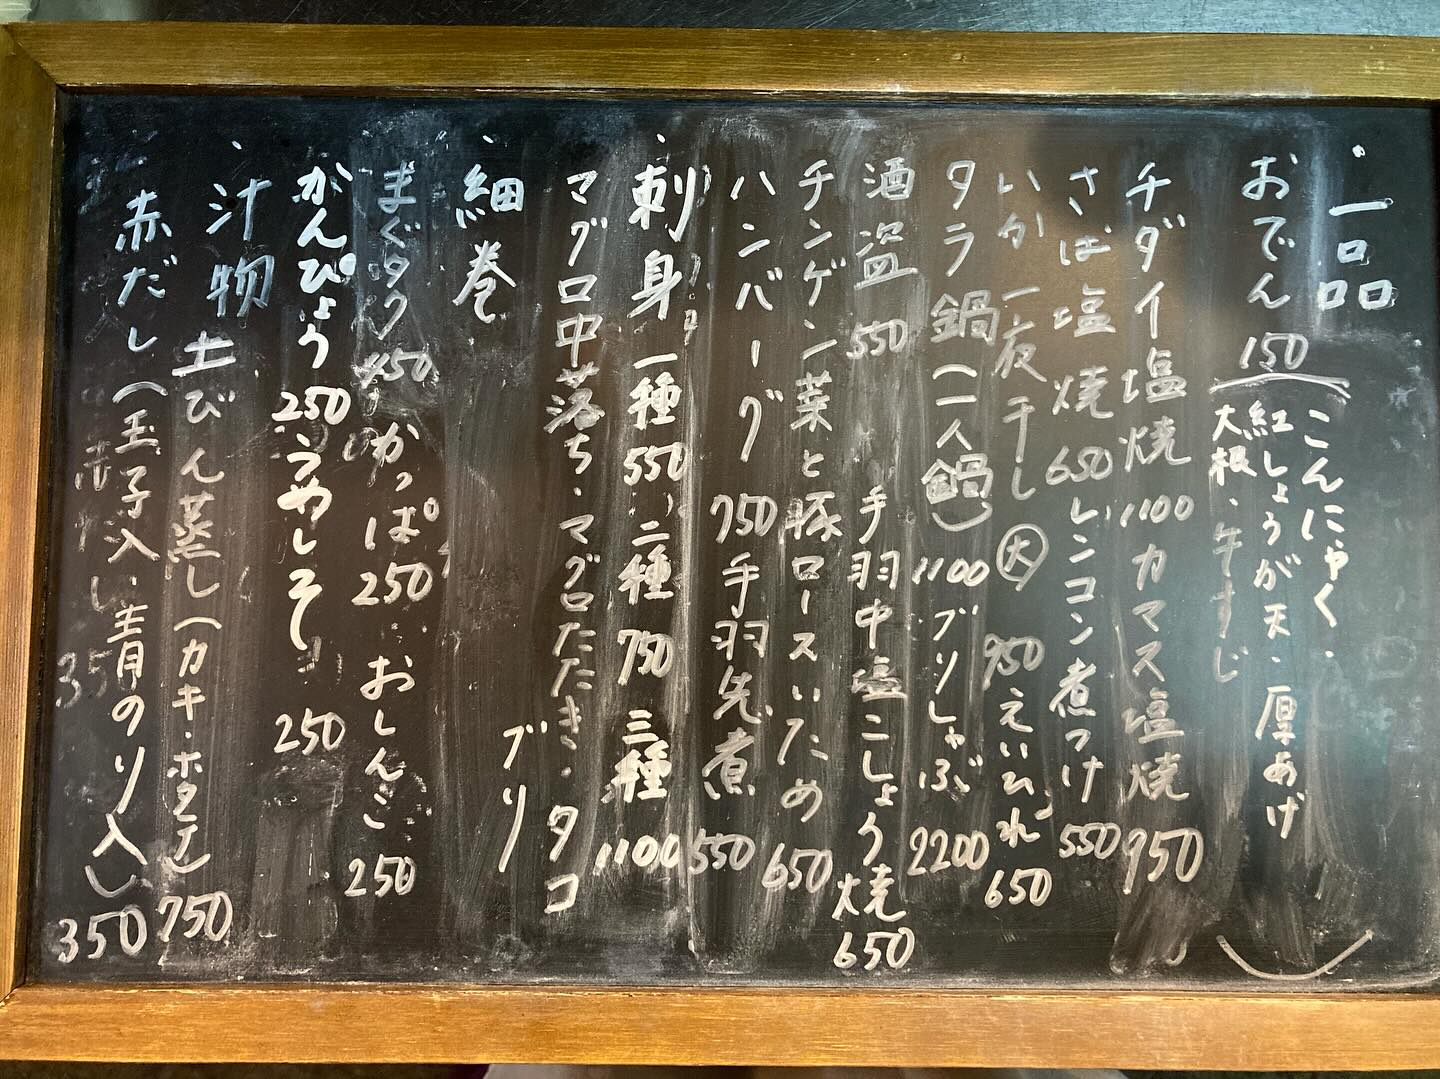 ・一品
おでん 150
こんにゃく・
紅しょうが天・厚あげ
大根・牛すじ
チダイ塩焼 1100 カマス塩焼 950
さば塩焼 650 レンコン煮つけ 550
いか一夜干し 大 950 えいひれ 650
タラ鍋(一人鍋) 1100 ブリしゃぶ 2200
酒盗 550 手羽中塩こしょう焼 650
チンゲン菜と豚ロースいため 650
ハンバーグ 750 手羽先煮 550
・刺身 一種 550 二種 750 三種 1100
マグロ中落ち・マグロたたき・タコ
ブリ
・細巻
まぐタク 450 かっぱ 250 おしんこ 250
かんぴょう 250 うめしそ 250
・汁物 土びん蒸し(カキ・ホタテ) 750
赤だし(玉子入・青のり入) 350